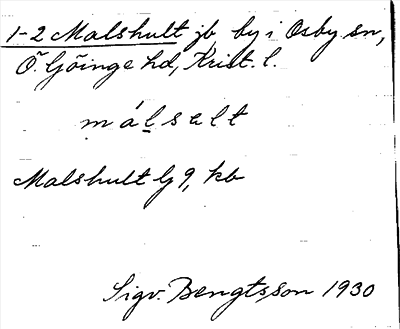 1-2 Malshult jb by i Osby sn,
Ö. Göinge hd, Krist. l.
målselt
Malshult lg 9, kb
Sigv. Bengtsson 1930